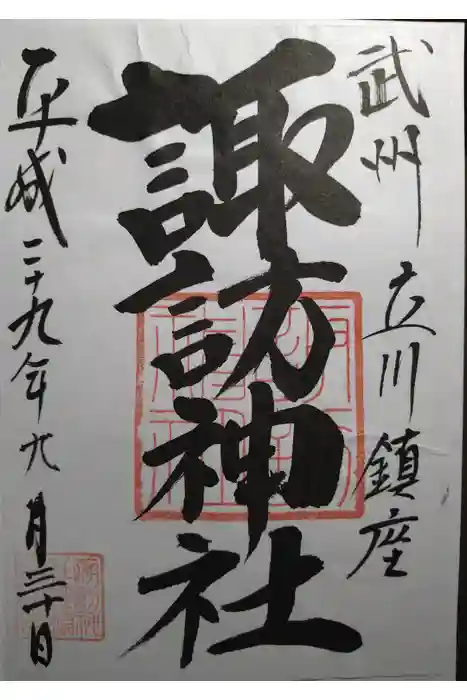 武州 立川 鎮座
諏訪神社
平成二十九年九月三十日